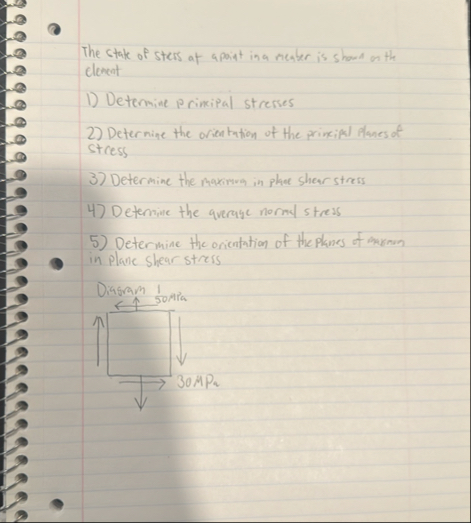 The state of stess at a point in a member is shown on the
element
1) Determine principal stresses
2) Determine the orientation of the principal planes of
stress
3) Determine the maximum in plane shear stress
4) Determine the average normal stress
5) Determine the orientation of the planes of maximum
in plane shear stress
Diagram 1
50MPa
30MPa